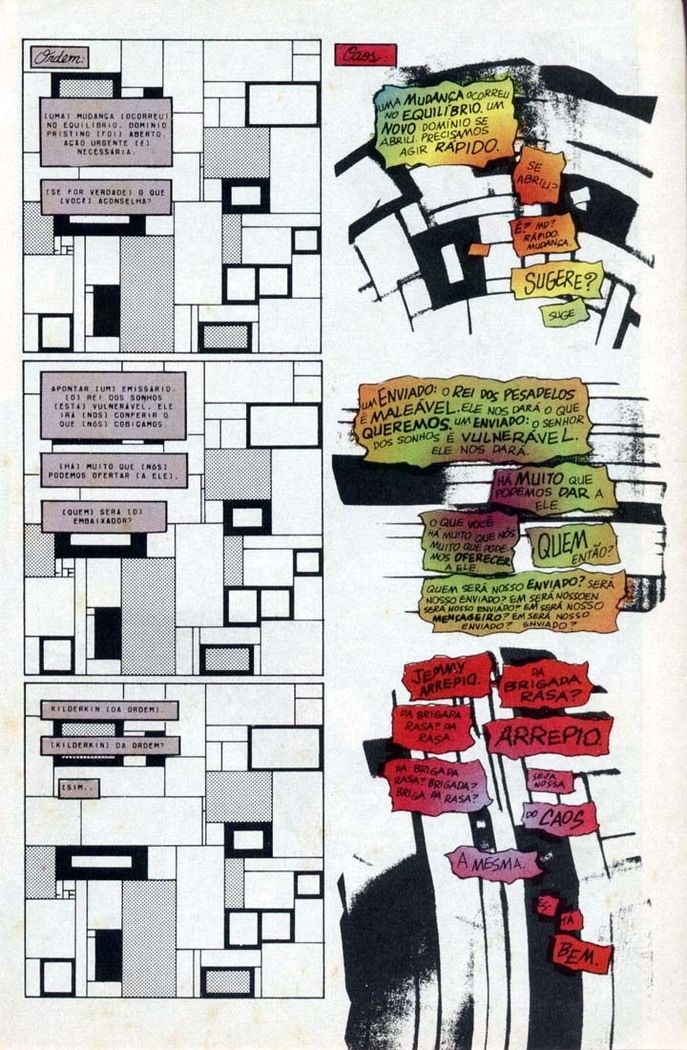 Ordem:
[UMA] MUDANÇA [OCORREU]
NO EQUILÍBRIO. DOMÍNIO
PRÍSTINO [FOI] ABERTO.
AÇÃO URGENTE [É]
NECESSÁRIA.
[SE FOR VERDADE] O QUE
[VOCÊ] ACONSELHA?
APONTAR [UM] EMISSÁRIO.
[O] REI DOS SONHOS
[ESTÁ] VULNERÁVEL. ELE
IRÁ [NOS] CONFERIR O
QUE [NÓS] COBIÇAMOS.
[HÁ] MUITO QUE [NÓS]
PODEMOS OFERTAR [A ELE].
[QUEM] SERÁ [O]
EMBAIXADOR?
KILDERKIN [DA ORDEM].
[KILDERKIN] DA ORDEM?
[SIM..
Caos:
UMA MUDANÇA OCORREU
NO EQUILÍBRIO. UM
NOVO DOMÍNIO SE
ABRIU. PRECISAMOS
AGIR RÁPIDO.
SE
ABRIU?
É? MD?
RÁPIDO.
MUDANÇA.
SUGERE?
SUGE
UM ENVIADO: O REI DOS PESADELOS
É MALEÁVEL. ELE NOS DARÁ O QUE
QUEREMOS. UM ENVIADO: O SENHOR
DOS SONHOS É VULNERÁVEL.
ELE NOS DARÁ.
HÁ MUITO QUE
PODEMOS DAR A
ELE.
O QUE VOCÊ
HÁ MUITO QUE NÓS
MUITO QUE PODE-
MOS OFERECER
A ELE.
QUEM
ENTÃO?
QUEM SERÁ NOSSO ENVIADO? SERÁ
NOSSO ENVIADO? EM SERÁ NOSSOEN
SERÁ NOSSO ENVIADO? EM SERÁ NOSSO
MENSAGEIRO? EM SERÁ NOSSO
ENVIADO? ENVIADO?
JEMMY
ARREPIO.
DA
BRIGADA
RASA?
DA BRIGADA
RASA? DA
RASA.
ARREPIO.
DA BRIGADA
RASA? BRIGADA?
BRIGA DA RASA?
SEJA
NOSSA
DO CAOS
A MESMA.
ES-
TÁ
BEM.